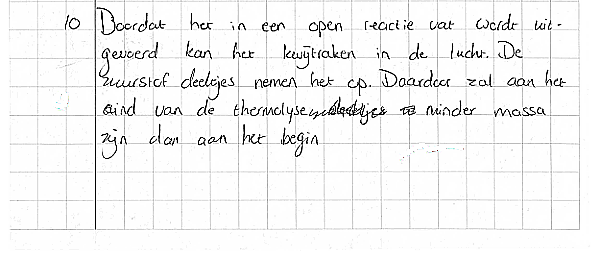 10 Doordat het in een open reactie vat wordt uit-
gevoerd kan het kwijtraken in de lucht. De
zuurstof deeltjes nemen het op. Daardoor zal aan het
eind van de thermolyse minder massa
zijn dan aan het begin